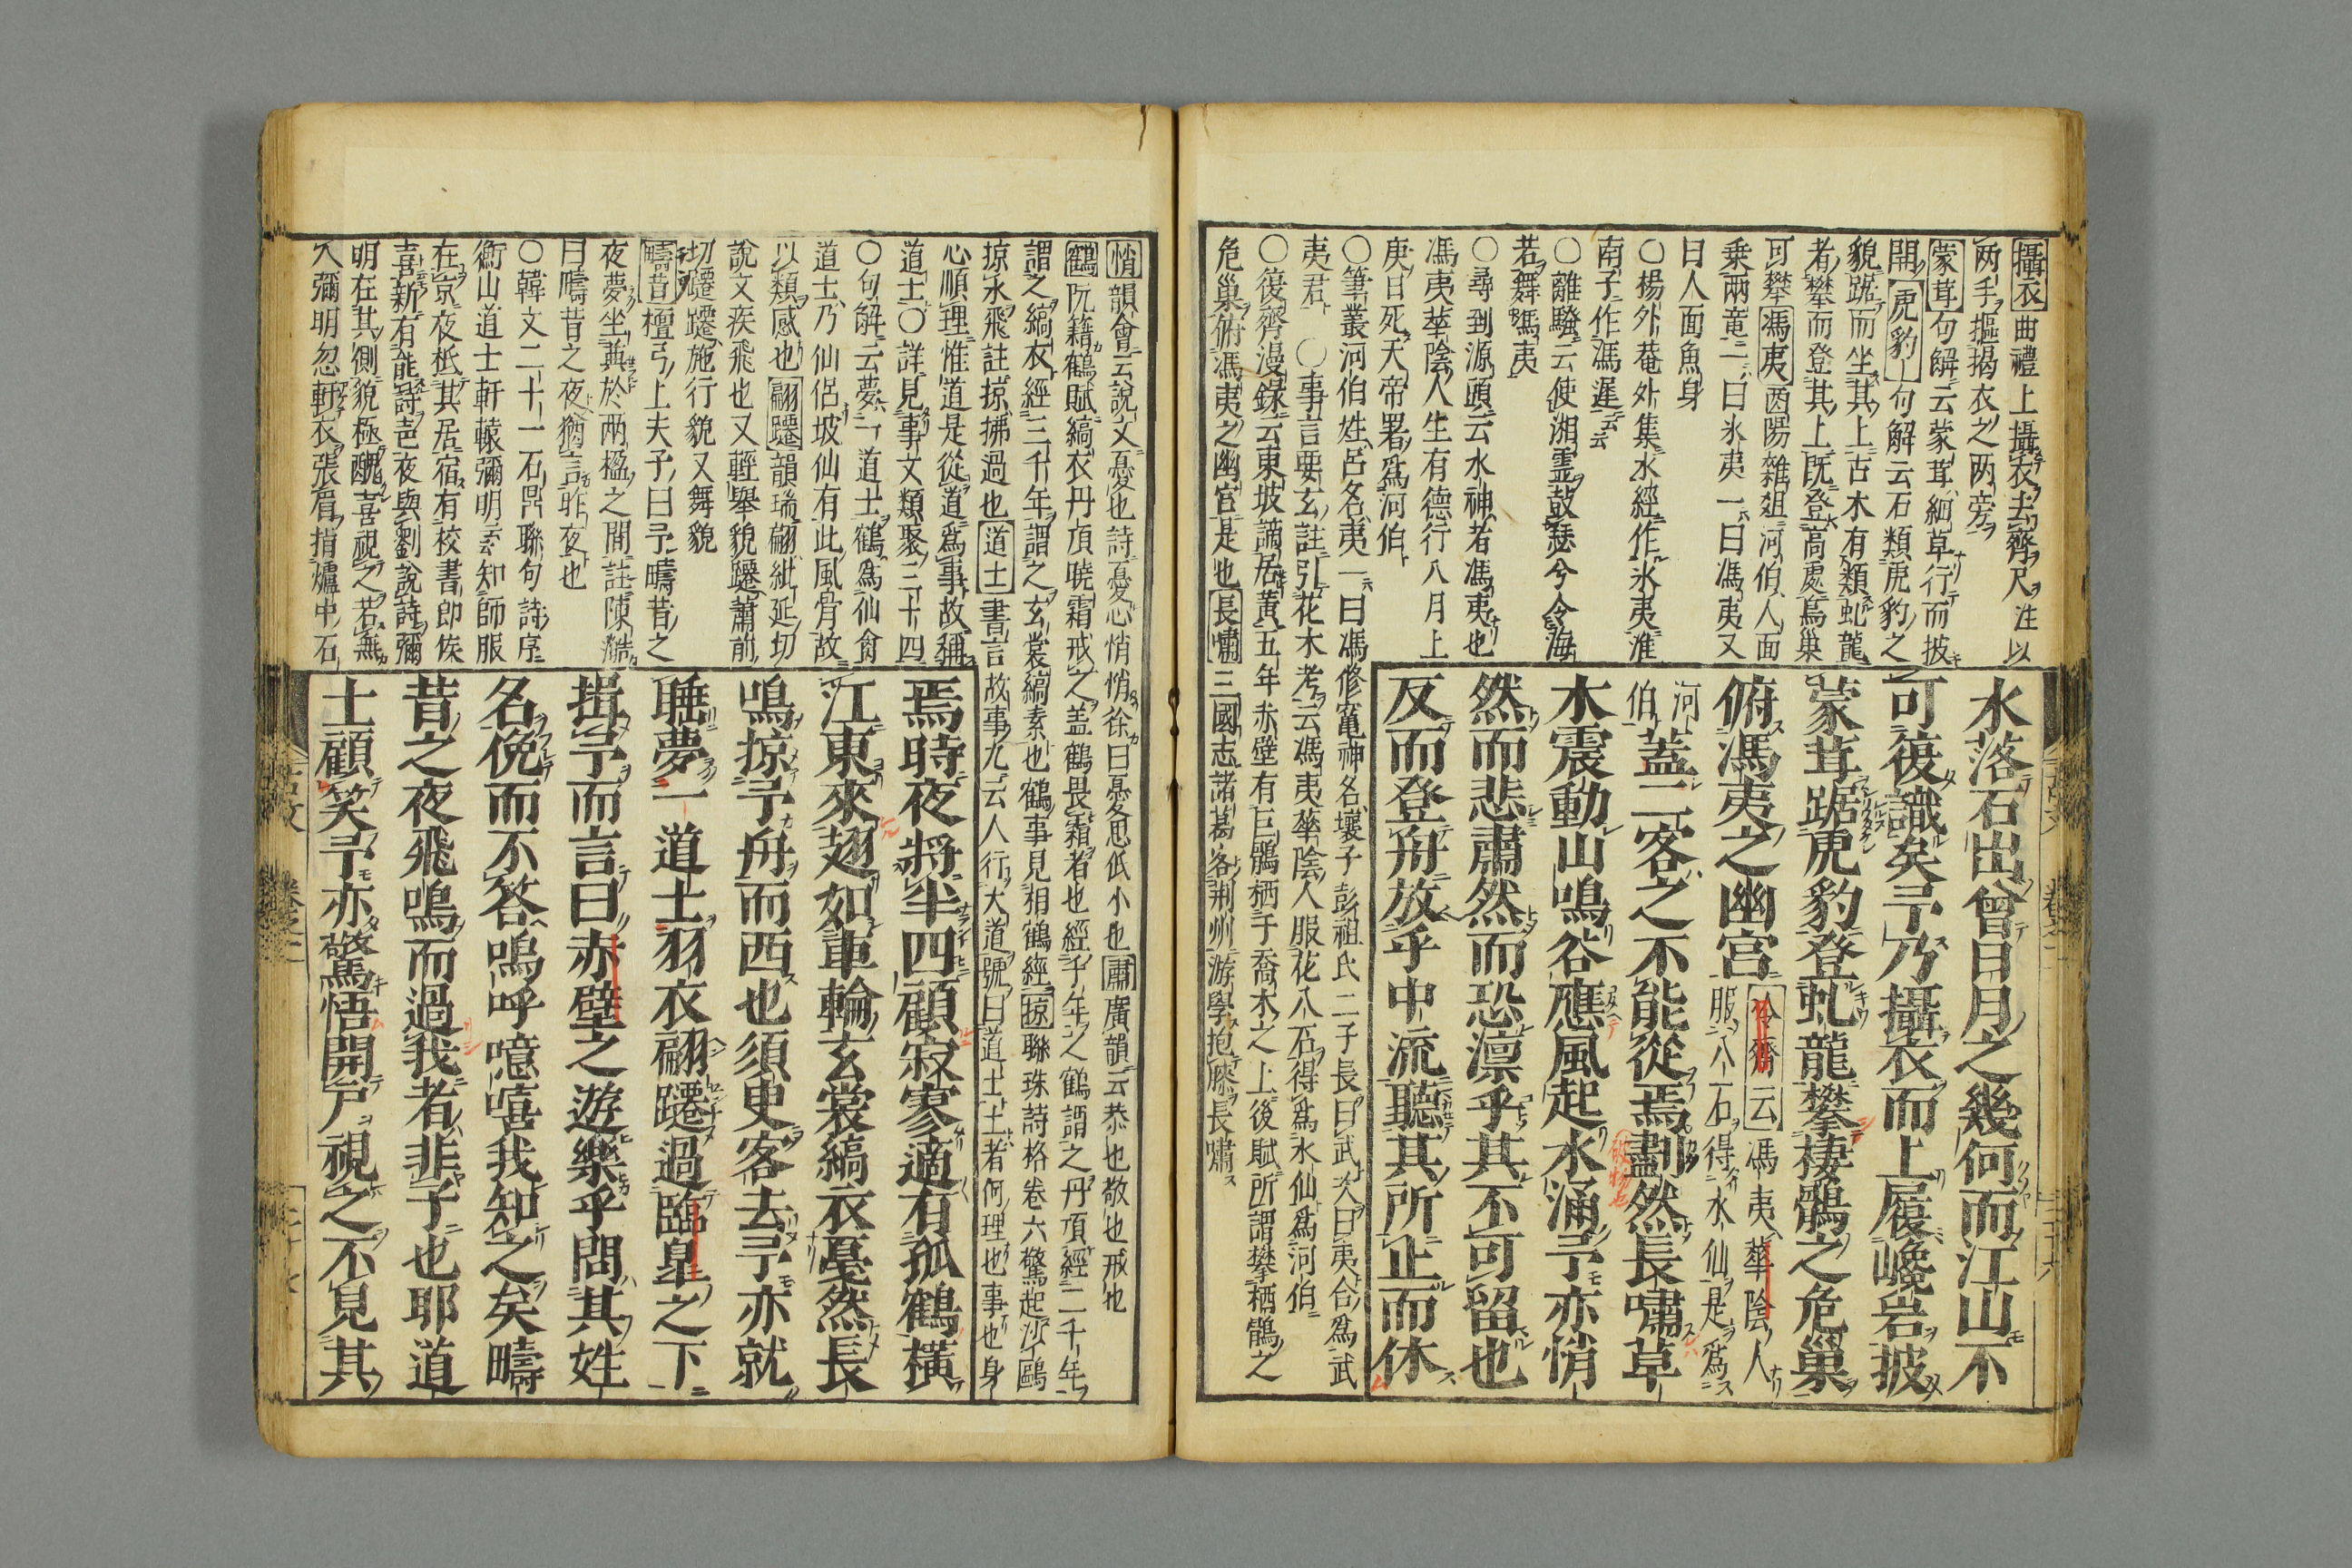 攝衣曲禮上攝衣去齊尺注以
两手摳揭衣之两旁
蒙茸句解云蒙茸細草行而披
開虎豹句解云石類虎豹之
貌踞而坐其上古木有類虬龍
者攀而登其上既登高處鳥巢
可攀馮夷酉陽雜俎河伯人面
乗兩竜二曰氷夷一曰馮夷又
曰人面魚身
〇楊外菴外集水經作氷夷淮
南子作馮遲云云
〇離騷云使湘霊鼓瑟兮令海
若舞馮夷
〇尋到源頭云水神者馮夷也
馮夷華陰人生有德行八月上
庚日死天帝署爲河伯
〇筆叢河伯姓呂名夷一曰馮修竃神名壤子彭祖氏二子長曰武次曰夷合爲武
夷君 〇事言要玄註引花木考云馮夷華陰人服花八石得爲水仙爲河伯
〇復齊漫録云東坡謫居黄五年赤壁有巨鶻栖于喬木之上後賦所謂攀栖鶻之
危巢俯馮夷之幽宮是也長嘯三國志諸葛客荆州游學抱膝長嘯
水落石出曾日月之幾何而江山不
可復識矣予乃攝衣而上履巉岩披
蒙茸踞虎豹登虬龍攀棲鶻之危巢
俯馮夷之幽宮冷齊云馮夷華陰人
服八石得水仙是爲
河伯蓋二客之不能從焉劃然長嘯草
木震動山鳴谷應風起水涌予亦悄
然而悲肅然而恐凛乎其不可留也
反而登舟放乎中流聽其所止而休
悄韻會云説文憂也詩憂心悄悄徐曰憂思低小也肅廣韻云恭也敬也戒也
鶴阮籍鶴賦縞衣丹頂曉霜戒之盖鶴畏霜者也經千年之鶴謂之丹頂經二千年
謂之縞衣經三千年謂之玄裳縞素也鶴事見相鶴經掠聯珠詩格卷六驚起沙鷗
掠水飛註掠拂過也道士書言故事九云人行大道號曰道士士者何理也事也身
心順理惟道是從道爲事故稱
道士〇詳見事文類聚三十四
〇句解云夢二道士鶴爲仙禽
道士乃仙侶坡仙有此風骨故
以類感也翩躚韻瑞翩紕延切
説文疾飛也又輕舉貌躚蕭前
切躚躚施行貌又舞貌
疇昔檀弓上夫子曰予疇昔之
夜夢坐奠於两楹之間註陳澔
曰疇昔之夜猶言昨夜也
〇韓文二十一石鼎聯句詩序
衡山道士軒轅彌明云云知師服
在京夜抵其居宿有校書郎侯
喜新有能詩声夜與劉説詩彌
明在其側貌極醜喜視之若無
人彌明忽軒衣張眉指爐中石
焉時夜將半四顧寂寥適有孤鶴橫
江東來翅如車輪玄裳縞衣戞然長
鳴掠予舟而西也須臾客去予亦就
睡夢一道士羽衣翩躚過臨皐之下
揖予而言曰赤壁之遊樂乎問其姓
名俛而不答嗚呼噫嘻我知之矣疇
昔之夜飛鳴而過我者非子也耶道
士顧笑予亦驚悟開戸視之不見其